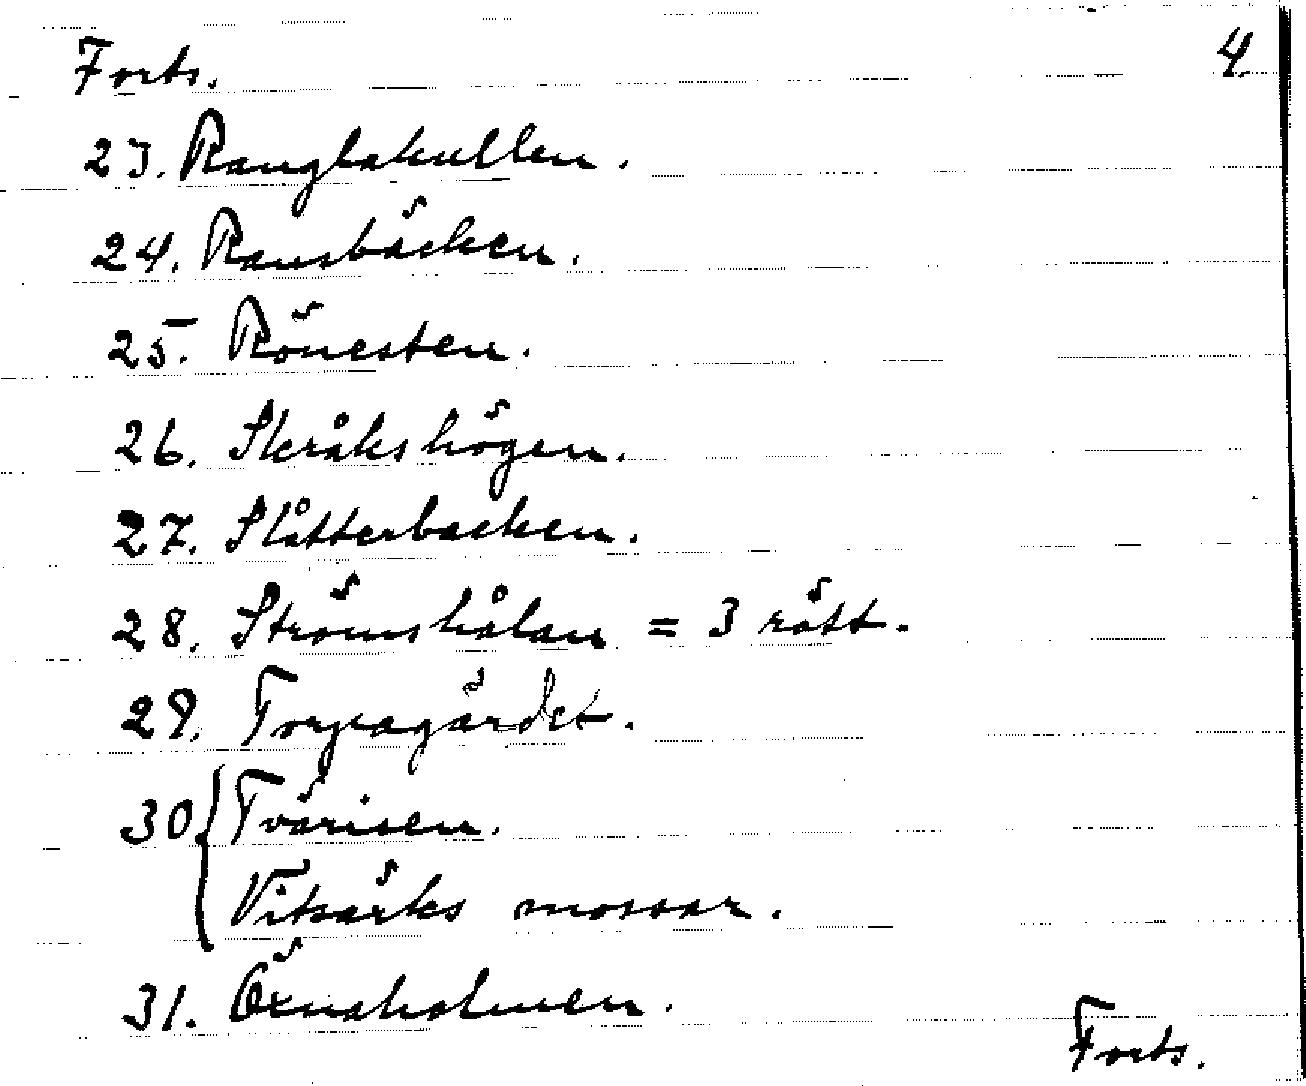 Forts. 4.
23. Ranglakullen.
24. Ransbäcken.
25. Rönesten.
26. Skråkshögen.
27. Slåtterbacken.
28. Strömshålan = 3 rätt.
29. Torpagärdet.
30 { Tvärisen.
Vitsärks mossar.
31. Öxnaholmen.
Forts.